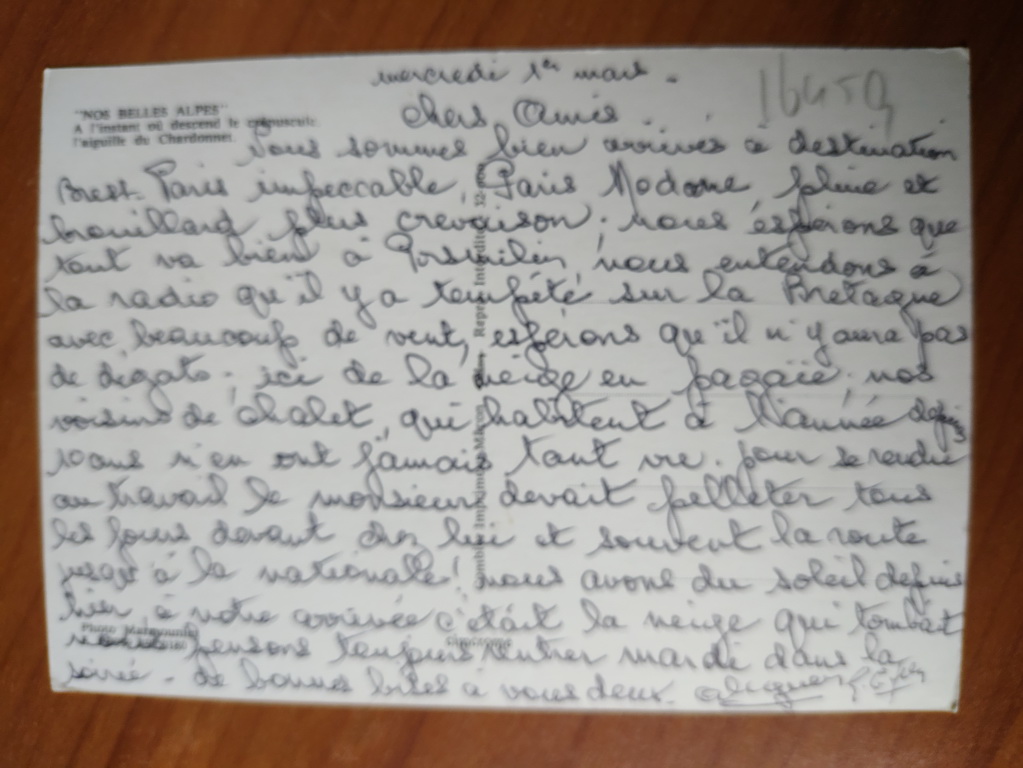 mercredi 1er mars.
16459
"NOS BELLES ALPES"
A l'instant où descend le crépuscule
l'aiguille du Chardonnet.
chers Amis.
nous sommes bien arrivés à destination
Brest. Paris impeccable, Paris Modane pluie et
brouillard plus crevaison. nous espérons que
tout va bien à Porsmilin, nous entendons à
la radio qu'il y a tempêté sur la Bretagne
avec beaucoup de vent, espérons qu'il n'y aura pas
de dégats. ici de la neige en pagaïe, nos
voisins de chalet, qui habitent à l'année depuis
10 ans n'en ont jamais tant vue. pour se rendre
au travail le monsieur devait pelleter tous
les jours devant chez lui et souvent la route
jusqu'à la nationale! nous avons du soleil depuis
hier à notre arrivée c'était la neige qui tombait
nous pensons toujours rentrer mardi dans la
soirée. de bonnes bises à vous deux.
Photo
Repro. Interdite
Combier Imp. Mâcon